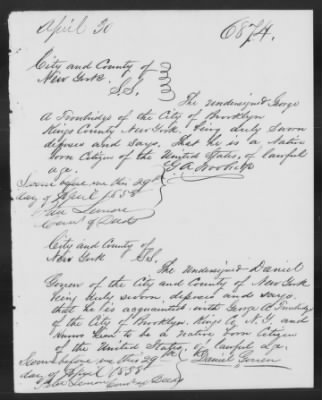 April 30
6874.
City and County of
New York
S.S.
The undersigned George
A Trowbridge of the City of Brooklyn
Kings County New York, being duly sworn
deposes and says, that he is a Native
born Citizen of the United States, of lawful
age.
G A Trowbridge
Sworn before me this 29th
day of April 1858
City and County of
New York S.S.
The undersigned Daniel
of the City and County of New York
being duly sworn, deposes and says.
that he is acquainted with George A Trowbridge
of the City of Brooklyn. Kings Co. N.Y. and
knows him to be a native born Citizen
of the United States, of lawful age.
Sworn before me this 29th
Daniel
day of April 1858